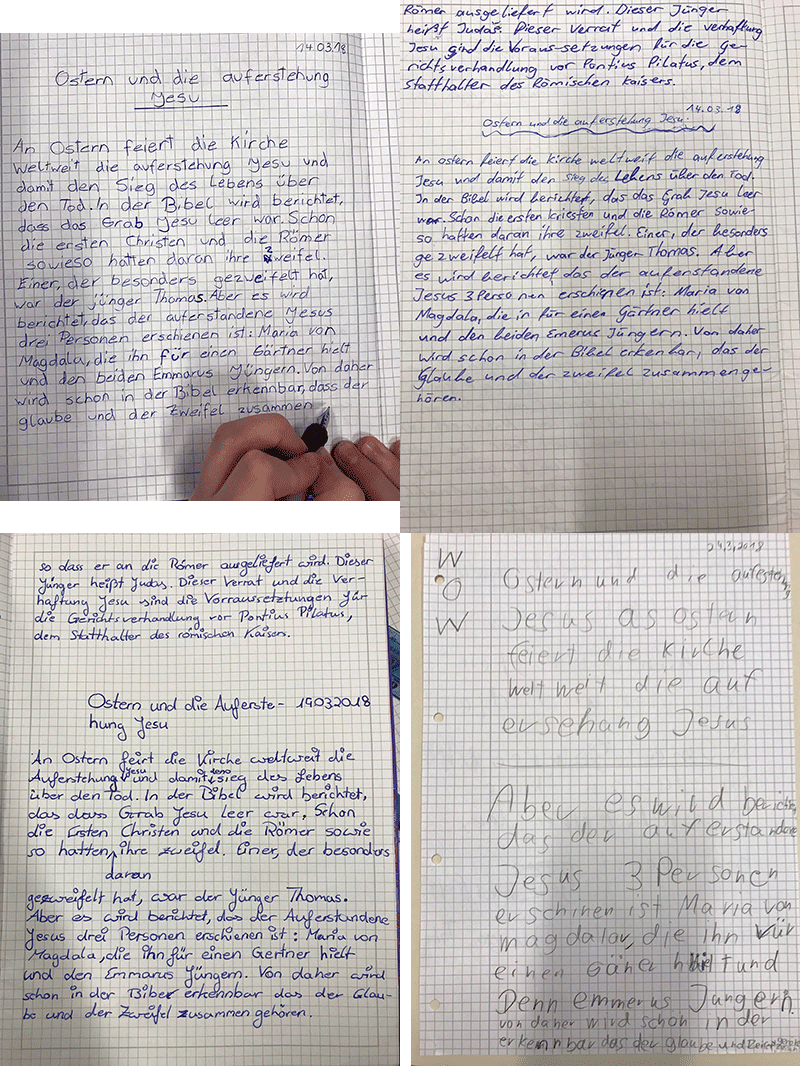 14.03.18
Ostern und die auferstehung
Yesu
An Ostern feiert die Kirche
Weltweit die auferstehung Yesu und
damit den Sieg des Lebens über
den Tod. In der Bibel wird berichtet,
dass das Grab Yesu leer war. Schon
die ersten Christen und die Römer
sowieso hatten daran ihre Zweifel.
Einer, der besonders gezweifelt hat,
war der jünger Thomas. Aber es wird
berichtet, das der auferstandene Yesus
drei Personen erschienen ist: Maria von
Magdala, die ihn für einen Gärtner hielt
und den beiden Emmarus Yüngern. Von daher
wird schon in der Bibel erkennbar, dass der
glaube und der Zweifel zusammen
Römer ausgeliefert wird. Dieser Jünger
heißt Judas. Dieser Verrat und die verhaftung
Jesu sind die Voraus-setzungen für die Ge-
richtsverhandlung vor Pontius Pilatus, dem
Statthalter des Römischen kaisers.
14.03.18
Ostern und die auferstehung Jesu.
An ostern feiert die kirche weltweit die auferstehung
Jesu und damit den Sieg des Lebens über den Tod.
In der Bibel wird berichtet, das das Grab Jesu leer
war. Schon die ersten kriesten und die Römer Sowie-
so hatten daran ihre zweifel. Einer, der besonders
gezweifelt hat, war der Jünger Thomas. Aber
es wird berichtet das der außenstandene
Jesus 3 Perso nen erschienen ist: Maria von
Magdala, die in für einen Gärtner hielt
und den beiden Emerus Jüngern. Von daher
wird schon in der Bibel erkenbar, das der
Glaube und der zweifel zusammenge-
hören.
so dass er an die Römer ausgeliefert wird. Dieser
Yünger heißt Yudas. Dieser Verrat und die Ver-
haftung Yesu sind die Vorraussetztungen für
die Gerichtsverhandlung vor Pontius Pilatus,
dem Statthalter des römischen Kaisers.
Ostern und die Auferste- 19032018
hung Yesu
An Ostern feirt die Kirche weltweit die
Auferstehung Yesu und damit den Sieg des Lebens
über den Tod. In der Bibel wird berichtet,
das dass Grab Yesu leer war, Schon
die Ersten Christen und die Römer sowie
so hatten, ihre zweifel. Einer, der besonders
daran
gezweifelt hat, war der Yünger Thomas.
Aber es wird berichtet, das der Auferstandene
Yesus drei Personen erschienen ist: Maria von
Magdala, die ihn für einen Gertner hielt
und den Emmarus Yüngern. Von daher wird
schon in der Biber erkennbar das der Glau-
be und der Zweifel zusammen gehören.
W
O
W
24,3,2018
Ostern und die aufestehung
Jesus as ostan
feiert die Kirche
welt weit die auf
ersehang Jesus
Aber es wird berichtet
das der auferstandene
Jesus 3 Personen
erschinen ist Maria von
magdalar, die ihn Vür
einen Gäher hielt und
Denn emmerus Jungern.
von daher wird schon in der
erkennbar das der glaube und